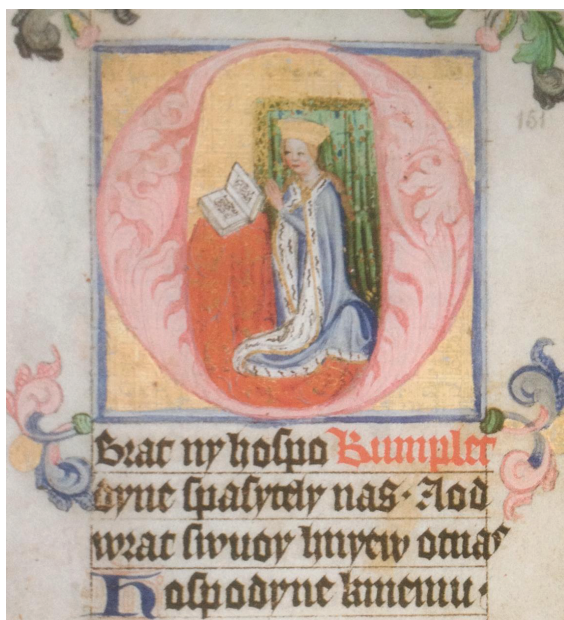 151
O
Brat ny hoſpo Kumplet
dyne ſpaſytely nas· Aod
wrat ſwuoy hnyew otnas
Hoſpodyne kmemu·